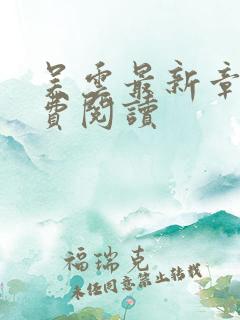 吴雲最新章
費閱讀
福瑞克
未经同意禁止转载